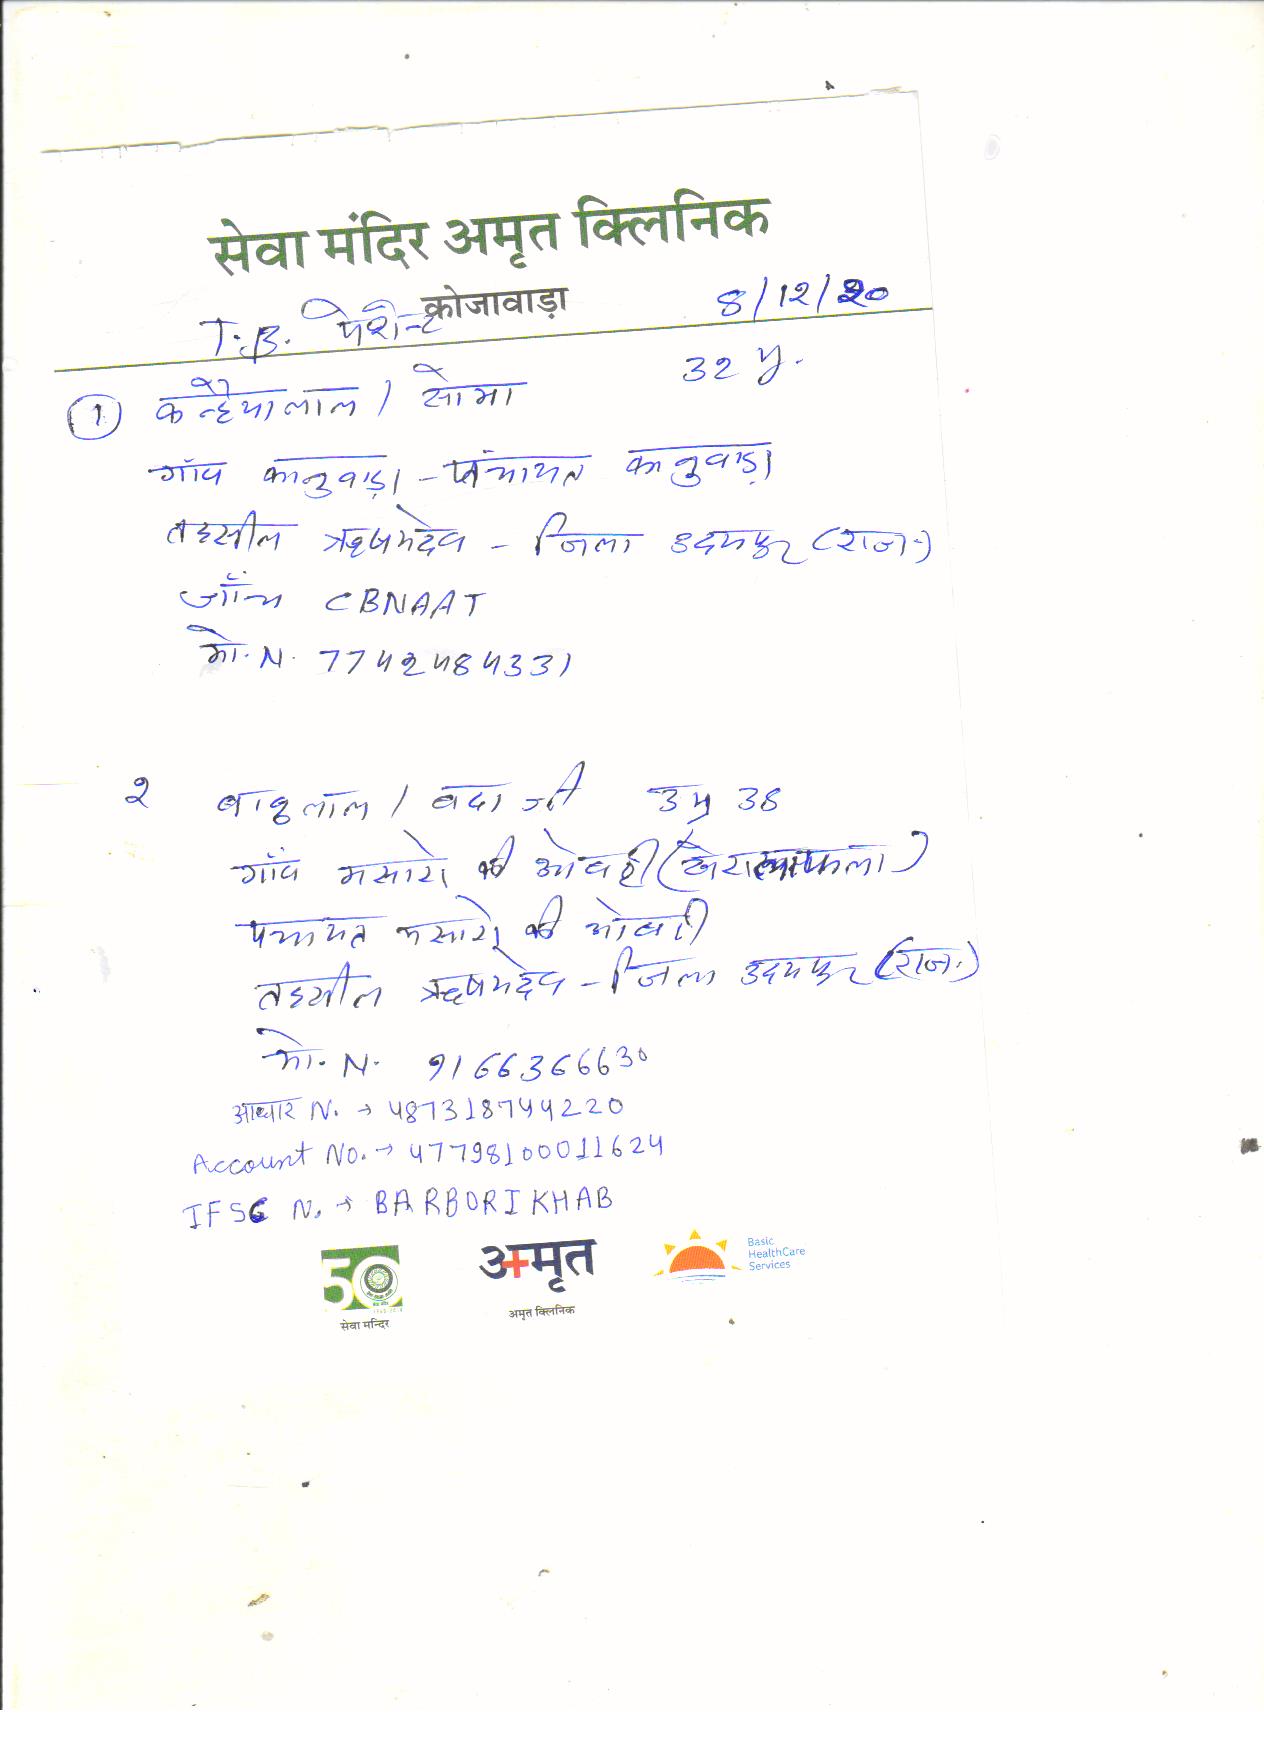 सेवा मंदिर अमृत क्लिनिक
कोजावाड़ा
8/12/20
T.B. पेशेन्ट
① कन्हैयालाल / सोमा 32 y.
गाँव कानुवाड़ा - पंचायत कानुवाड़ा
तहसील ऋषभदेव - जिला उदयपुर (राज.)
जाँच CBNAAT
मो. N. 7742484331
2 बाबुलाल / बदा जी उम्र 38
गाँव मसारो की ओबरी (
पंचायत मसारो की ओबरी
तहसील ऋषभदेव - जिला उदयपुर (राज.)
मो. N. 9166366630
आधार N. → 487318744220
Account No. → 47798100011624
IFSC N. → BARB0RIKHAB
50
सेवा मन्दिर
अमृत
अमृत क्लिनिक
Basic
HealthCare
Services